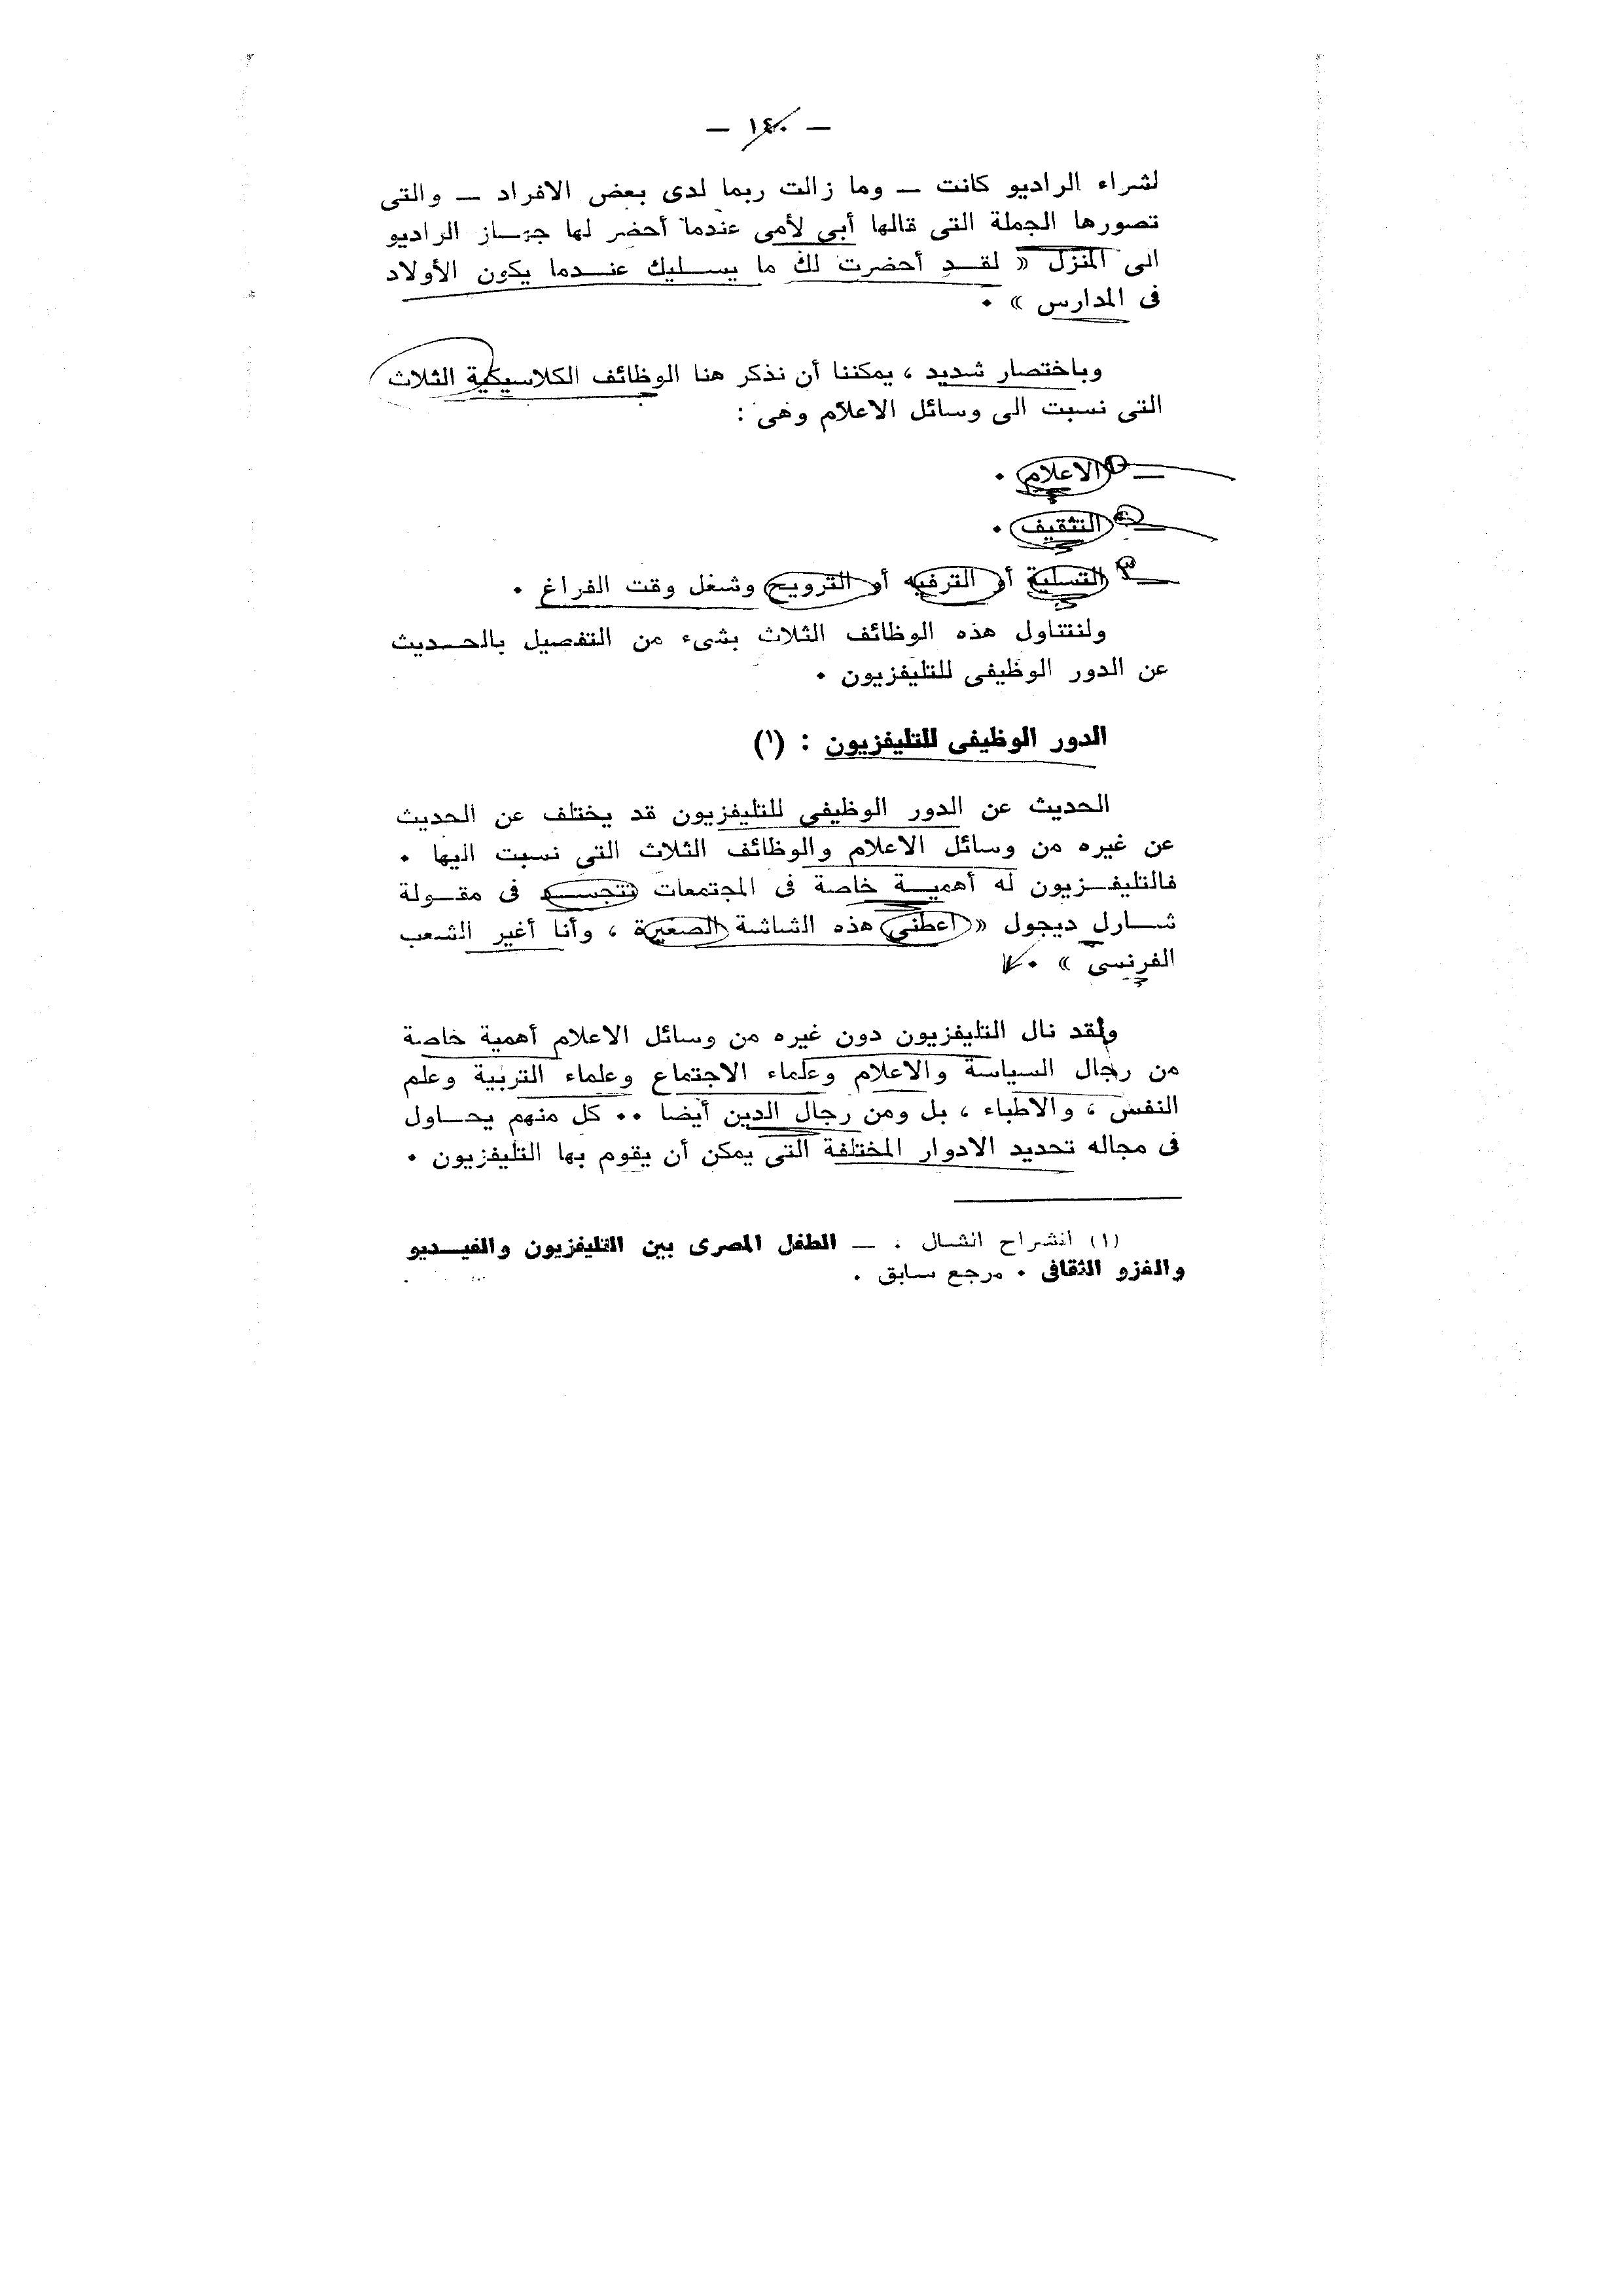 — ١٤٠ —
لشراء الراديو كانت — وما زالت ربما لدى بعض الافراد — والتى
تصورها الجملة التى قالها أبى لأمى عندما أحضر لها جهـاز الراديو
الى المنزل « لقـد أحضرت لك ما يسـليك عنـدما يكون الأولاد
فى المدارس » ٠
وباختصار شديد ، يمكننا أن نذكر هنا الوظائف الكلاسيكية الثلاث
التى نسبت الى وسائل الاعلام وهى :
— ١ الاعلام ٠
— ٢ التثقيف ٠
— ٣ التسلية أو الترفيه أو الترويح وشغل وقت الفراغ ٠
ولنتناول هذه الوظائف الثلاث بشىء من التفصيل بالحـديث
عن الدور الوظيفى للتليفزيون ٠
الدور الوظيفى للتليفزيون : (١)
الحديث عن الدور الوظيفى للتليفزيون قد يختلف عن الحديث
عن غيره من وسائل الاعلام والوظائف الثلاث التى نسبت اليها ٠
فالتليفـزيون له أهميـة خاصة فى المجتمعات تتجسـد فى مقـولة
شـارل ديجول « اعطنى هذه الشاشة الصغيرة ، وأنا أغير الشعب
الفرنسى » ٠
ولقد نال التليفزيون دون غيره من وسائل الاعلام أهمية خاصة
من رجال السياسة والاعلام وعلماء الاجتماع وعلماء التربية وعلم
النفس ، والاطباء ، بل ومن رجال الدين أيضا ٠٠ كل منهم يحـاول
فى مجاله تحديد الادوار المختلفة التى يمكن أن يقوم بها التليفزيون ٠
(١) انشراح الشال ٠ — الطفل المصرى بين التليفزيون والفيـديو
والغزو الثقافى ٠ مرجع سابق ٠